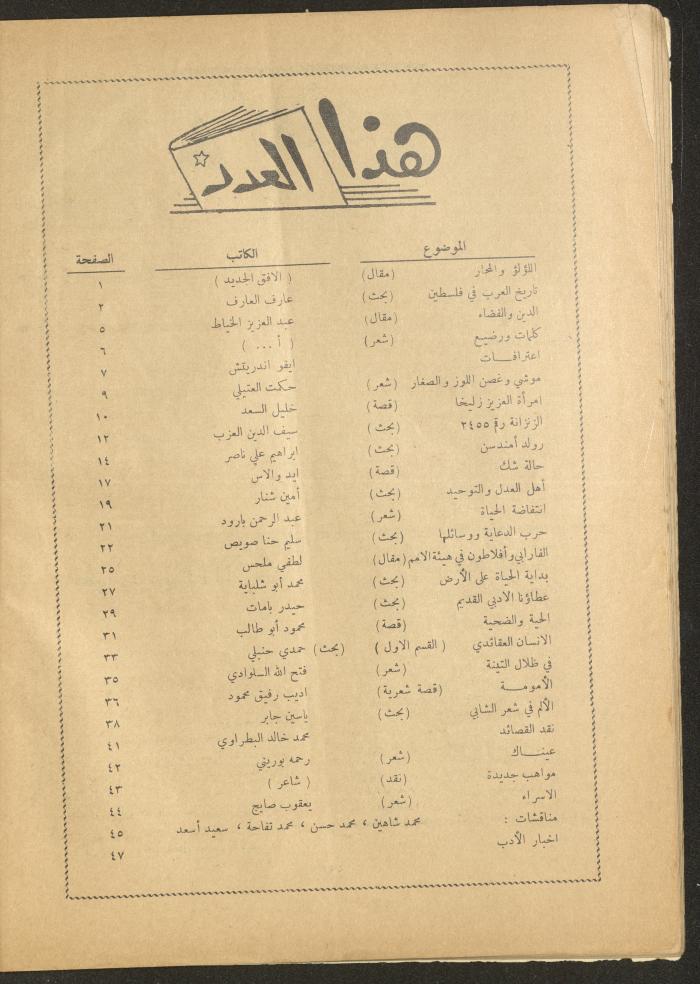 هذا العدد
الموضوع الكاتب الصفحة
اللؤلؤ والمحار (مقال) ( الافق الجديد ) ١
تاريخ العرب في فلسطين (بحث) عارف العارف ٢
الدين والفضاء (مقال) عبد العزيز الخياط ٥
كلمات ورضيع (شعر) ( أ ... ) ٦
اعترافـــات ايفو اندريتش ٧
موشي وغصن اللوز والصغار (شعر) حكمت العتيلي ٩
امرأة العزيز زليخا (قصة) خليل السعد ١٠
الزنزانة رقم ٢٤٥٥ (بحث) سيف الدين العزب ١٢
رولد أمندسن (بحث) ابراهيم علي ناصر ١٤
حالة شك (قصة) ايد والاس ١٧
أهل العدل والتوحيد (بحث) أمين شنار ١٩
انتفاضة الحياة (شعر) عبد الرحمن بارود ٢١
حرب الدعاية ووسائلها (بحث) سليم حنا صويص ٢٢
الفارابي وأفلاطون في هيئة الامم (مقال) لطفي ملحس ٢٥
بداية الحياة على الأرض (بحث) محمد أبو شلباية ٢٧
عطاؤنا الادبي القديم (بحث) حيدر بامات ٢٩
الحية والضحية (قصة) محمود أبو طالب ٣١
الانسان العقائدي ( القسم الاول ) (بحث) حمدي حنبلي ٣٣
في ظلال التينة (شعر) فتح الله السلوادي ٣٥
الأمومـــة (قصة شعرية) اديب رفيق محمود ٣٦
الألم في شعر الشابي (بحث) ياسين جابر ٣٨
نقد القصائد محمد خالد البطراوي ٤١
عينـــاك (شعر) رحمه بوريني ٤٢
مواهب جديدة (نقد) ( شاعر ) ٤٣
الاسراء (شعر) يعقوب صايج ٤٤
مناقشات : محمد شاهين ، محمد حسن ، محمد تفاحة ، سعيد أسعد ٤٥
اخبار الأدب ٤٧